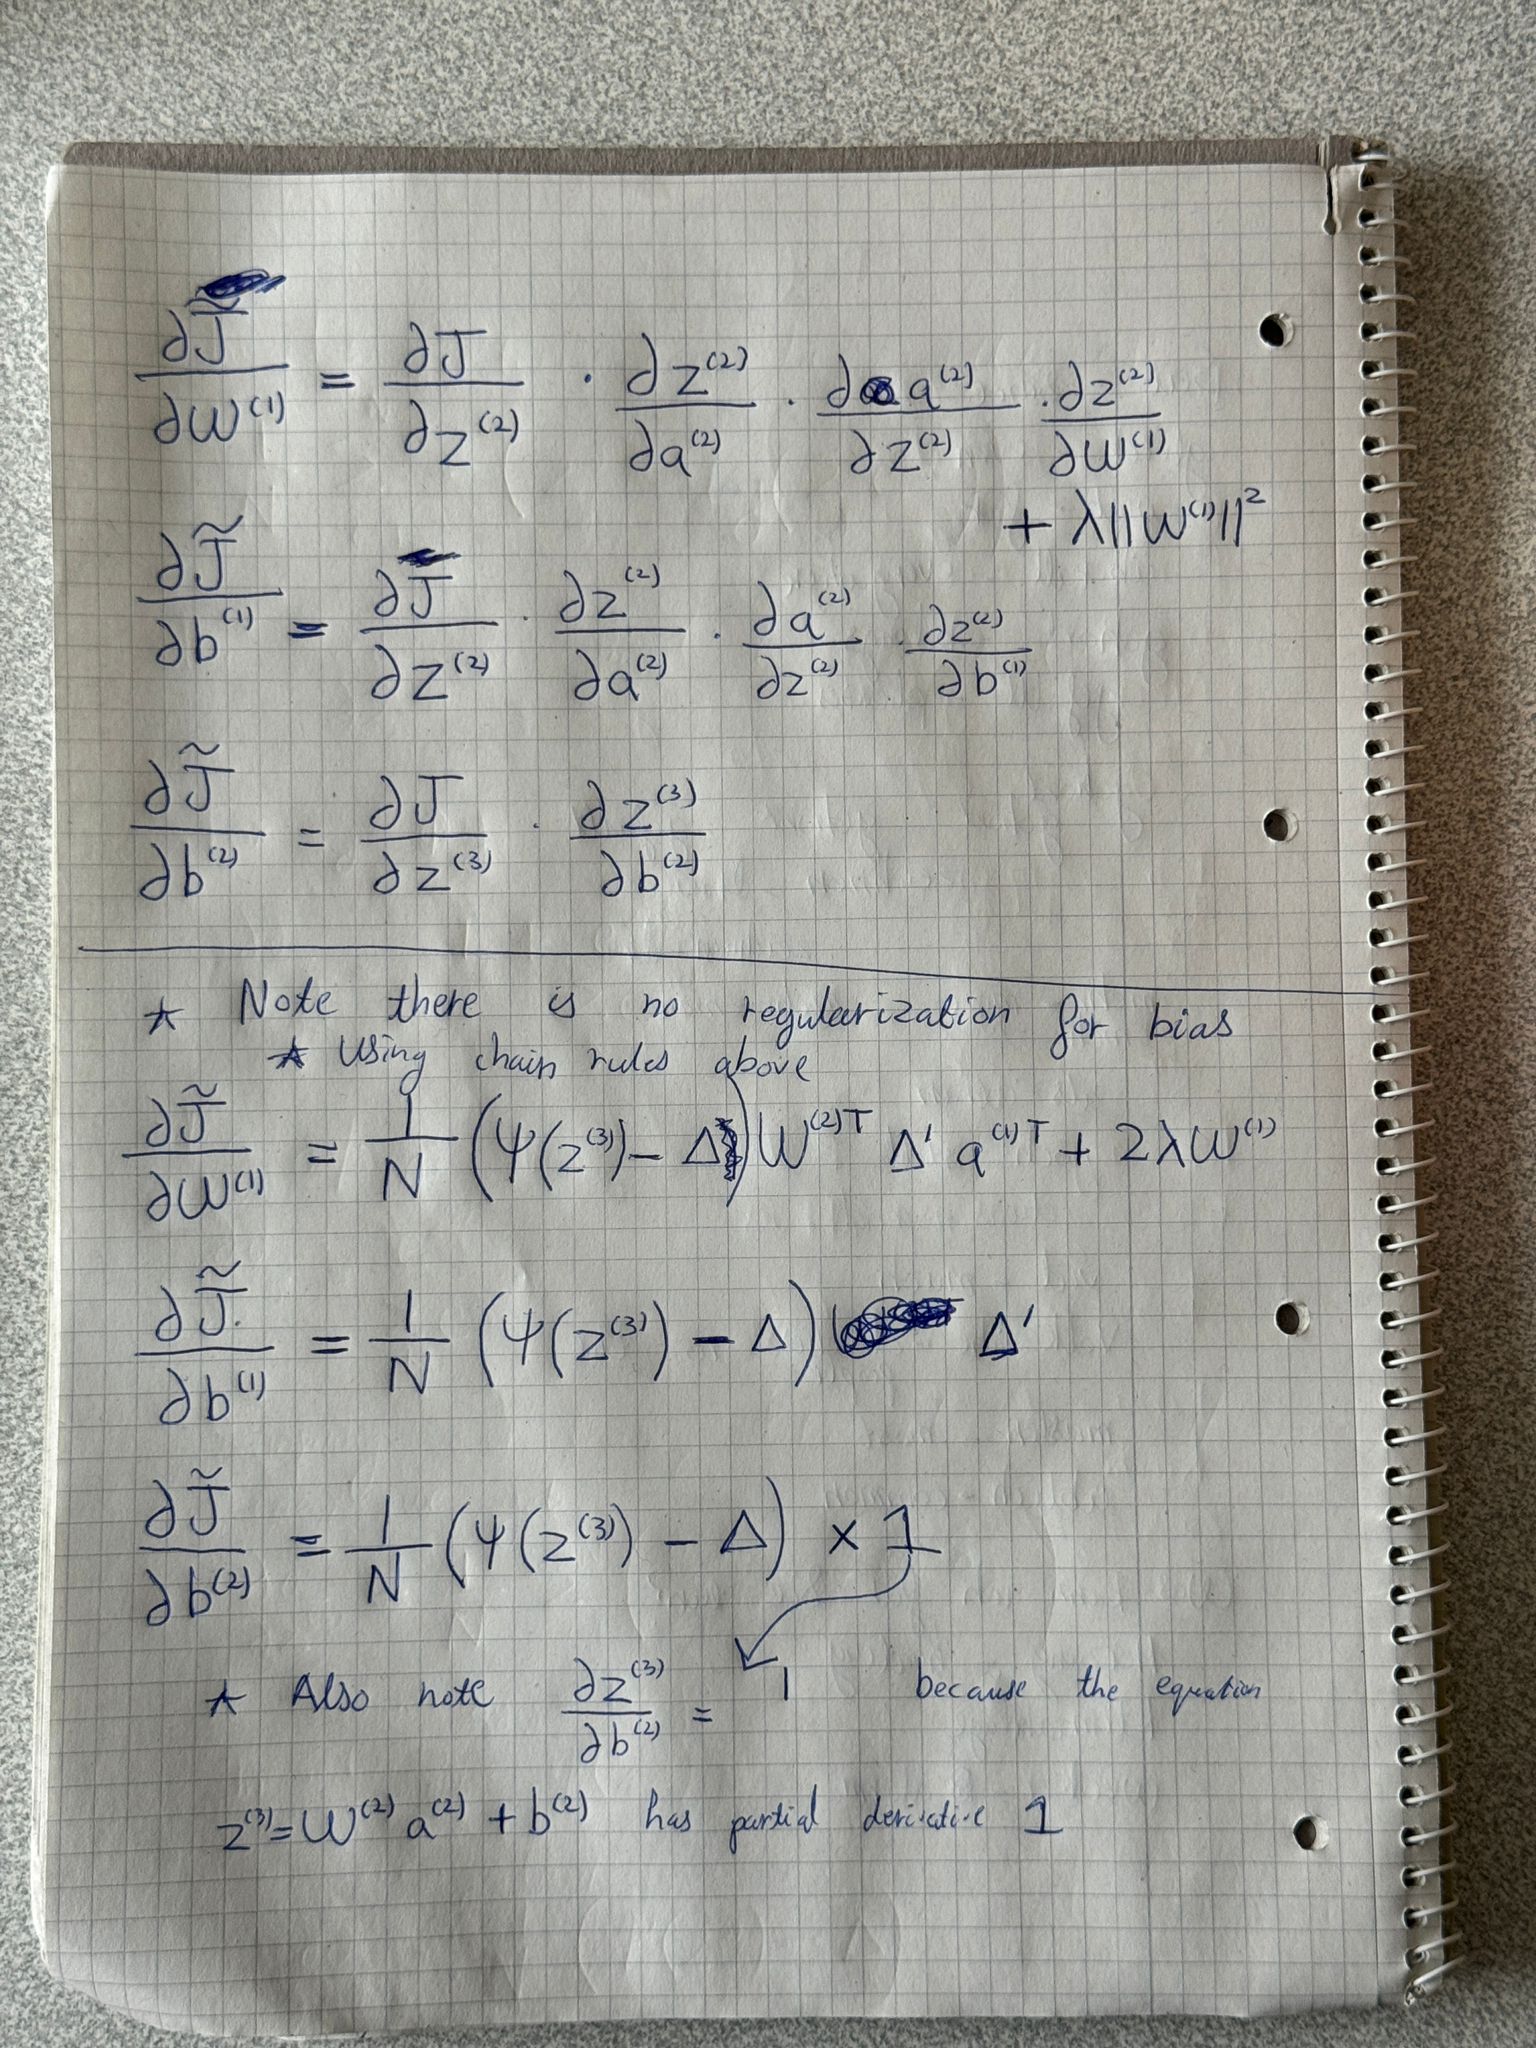 ∂J̃/∂W⁽¹⁾ = ∂J/∂z⁽²⁾ · ∂z⁽²⁾/∂a⁽²⁾ · ∂a⁽²⁾/∂z⁽²⁾ · ∂z⁽²⁾/∂W⁽¹⁾
+ λ||W⁽¹⁾||²
∂J̃/∂b⁽¹⁾ = ∂J/∂z⁽²⁾ · ∂z⁽²⁾/∂a⁽²⁾ · ∂a⁽²⁾/∂z⁽²⁾ · ∂z⁽²⁾/∂b⁽¹⁾
∂J̃/∂b⁽²⁾ = ∂J/∂z⁽³⁾ · ∂z⁽³⁾/∂b⁽²⁾
* Note there is no regularization for bias
* Using chain rules above
∂J̃/∂W⁽¹⁾ = 1/N (ψ(z⁽³⁾) − Δ) W⁽²⁾ᵀ Δ' a⁽¹⁾ᵀ + 2λW⁽¹⁾
∂J̃/∂b⁽¹⁾ = 1/N (ψ(z⁽³⁾) − Δ) Δ'
∂J̃/∂b⁽²⁾ = 1/N (ψ(z⁽³⁾) − Δ) × 1
* Also note ∂z⁽³⁾/∂b⁽²⁾ = 1 because the equation
z⁽³⁾ = W⁽²⁾ a⁽²⁾ + b⁽²⁾ has partial derivative 1